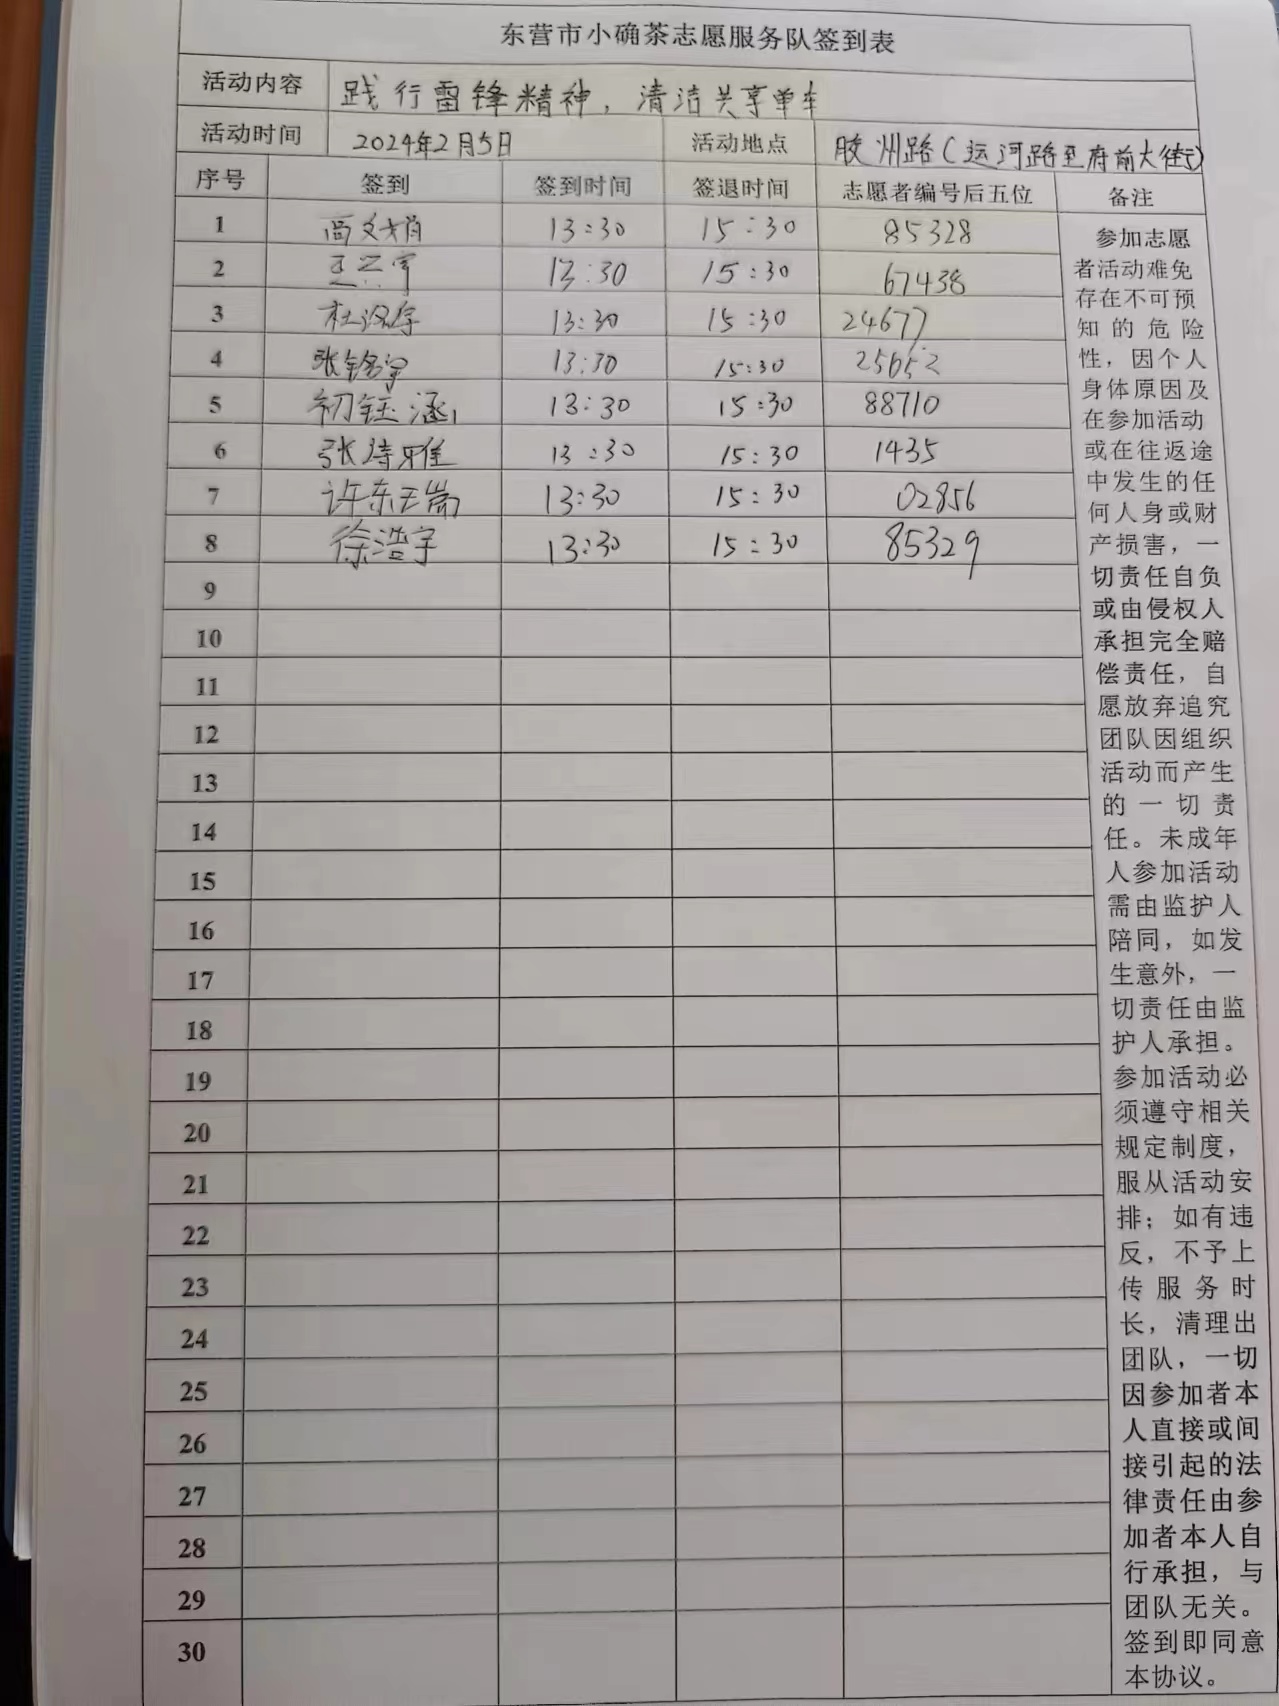 东营市小确茶志愿服务队签到表
活动内容 践行雷锋精神，清洁共享单车
活动时间 2024年2月5日 活动地点 胶州路（运河路至府前大街）
序号 签到 签到时间 签退时间 志愿者编号后五位 备注
1 13:30 15:30 85328
2 13:30 15:30 67438
3 杜汶宇 13:30 15:30 24677
4 张铭宇 13:30 15:30 25652
5 初钰涵 13:30 15:30 88710
6 张诗雅 13:30 15:30 1435
7 许东瑞 13:30 15:30 02856
8 徐浩宇 13:30 15:30 85329
9
10
11
12
13
14
15
16
17
18
19
20
21
22
23
24
25
26
27
28
29
30
参加志愿
者活动难免
存在不可预
知的危险
性，因个人
身体原因及
在参加活动
或在往返途
中发生的任
何人身或财
产损害，一
切责任自负
或由侵权人
承担完全赔
偿责任，自
愿放弃追究
团队因组织
活动而产生
的一切责
任。未成年
人参加活动
需由监护人
陪同，如发
生意外，一
切责任由监
护人承担。
参加活动必
须遵守相关
规定制度，
服从活动安
排；如有违
反，不予上
传服务时
长，清理出
团队，一切
因参加者本
人直接或间
接引起的法
律责任由参
加者本人自
行承担，与
团队无关。
签到即同意
本协议。